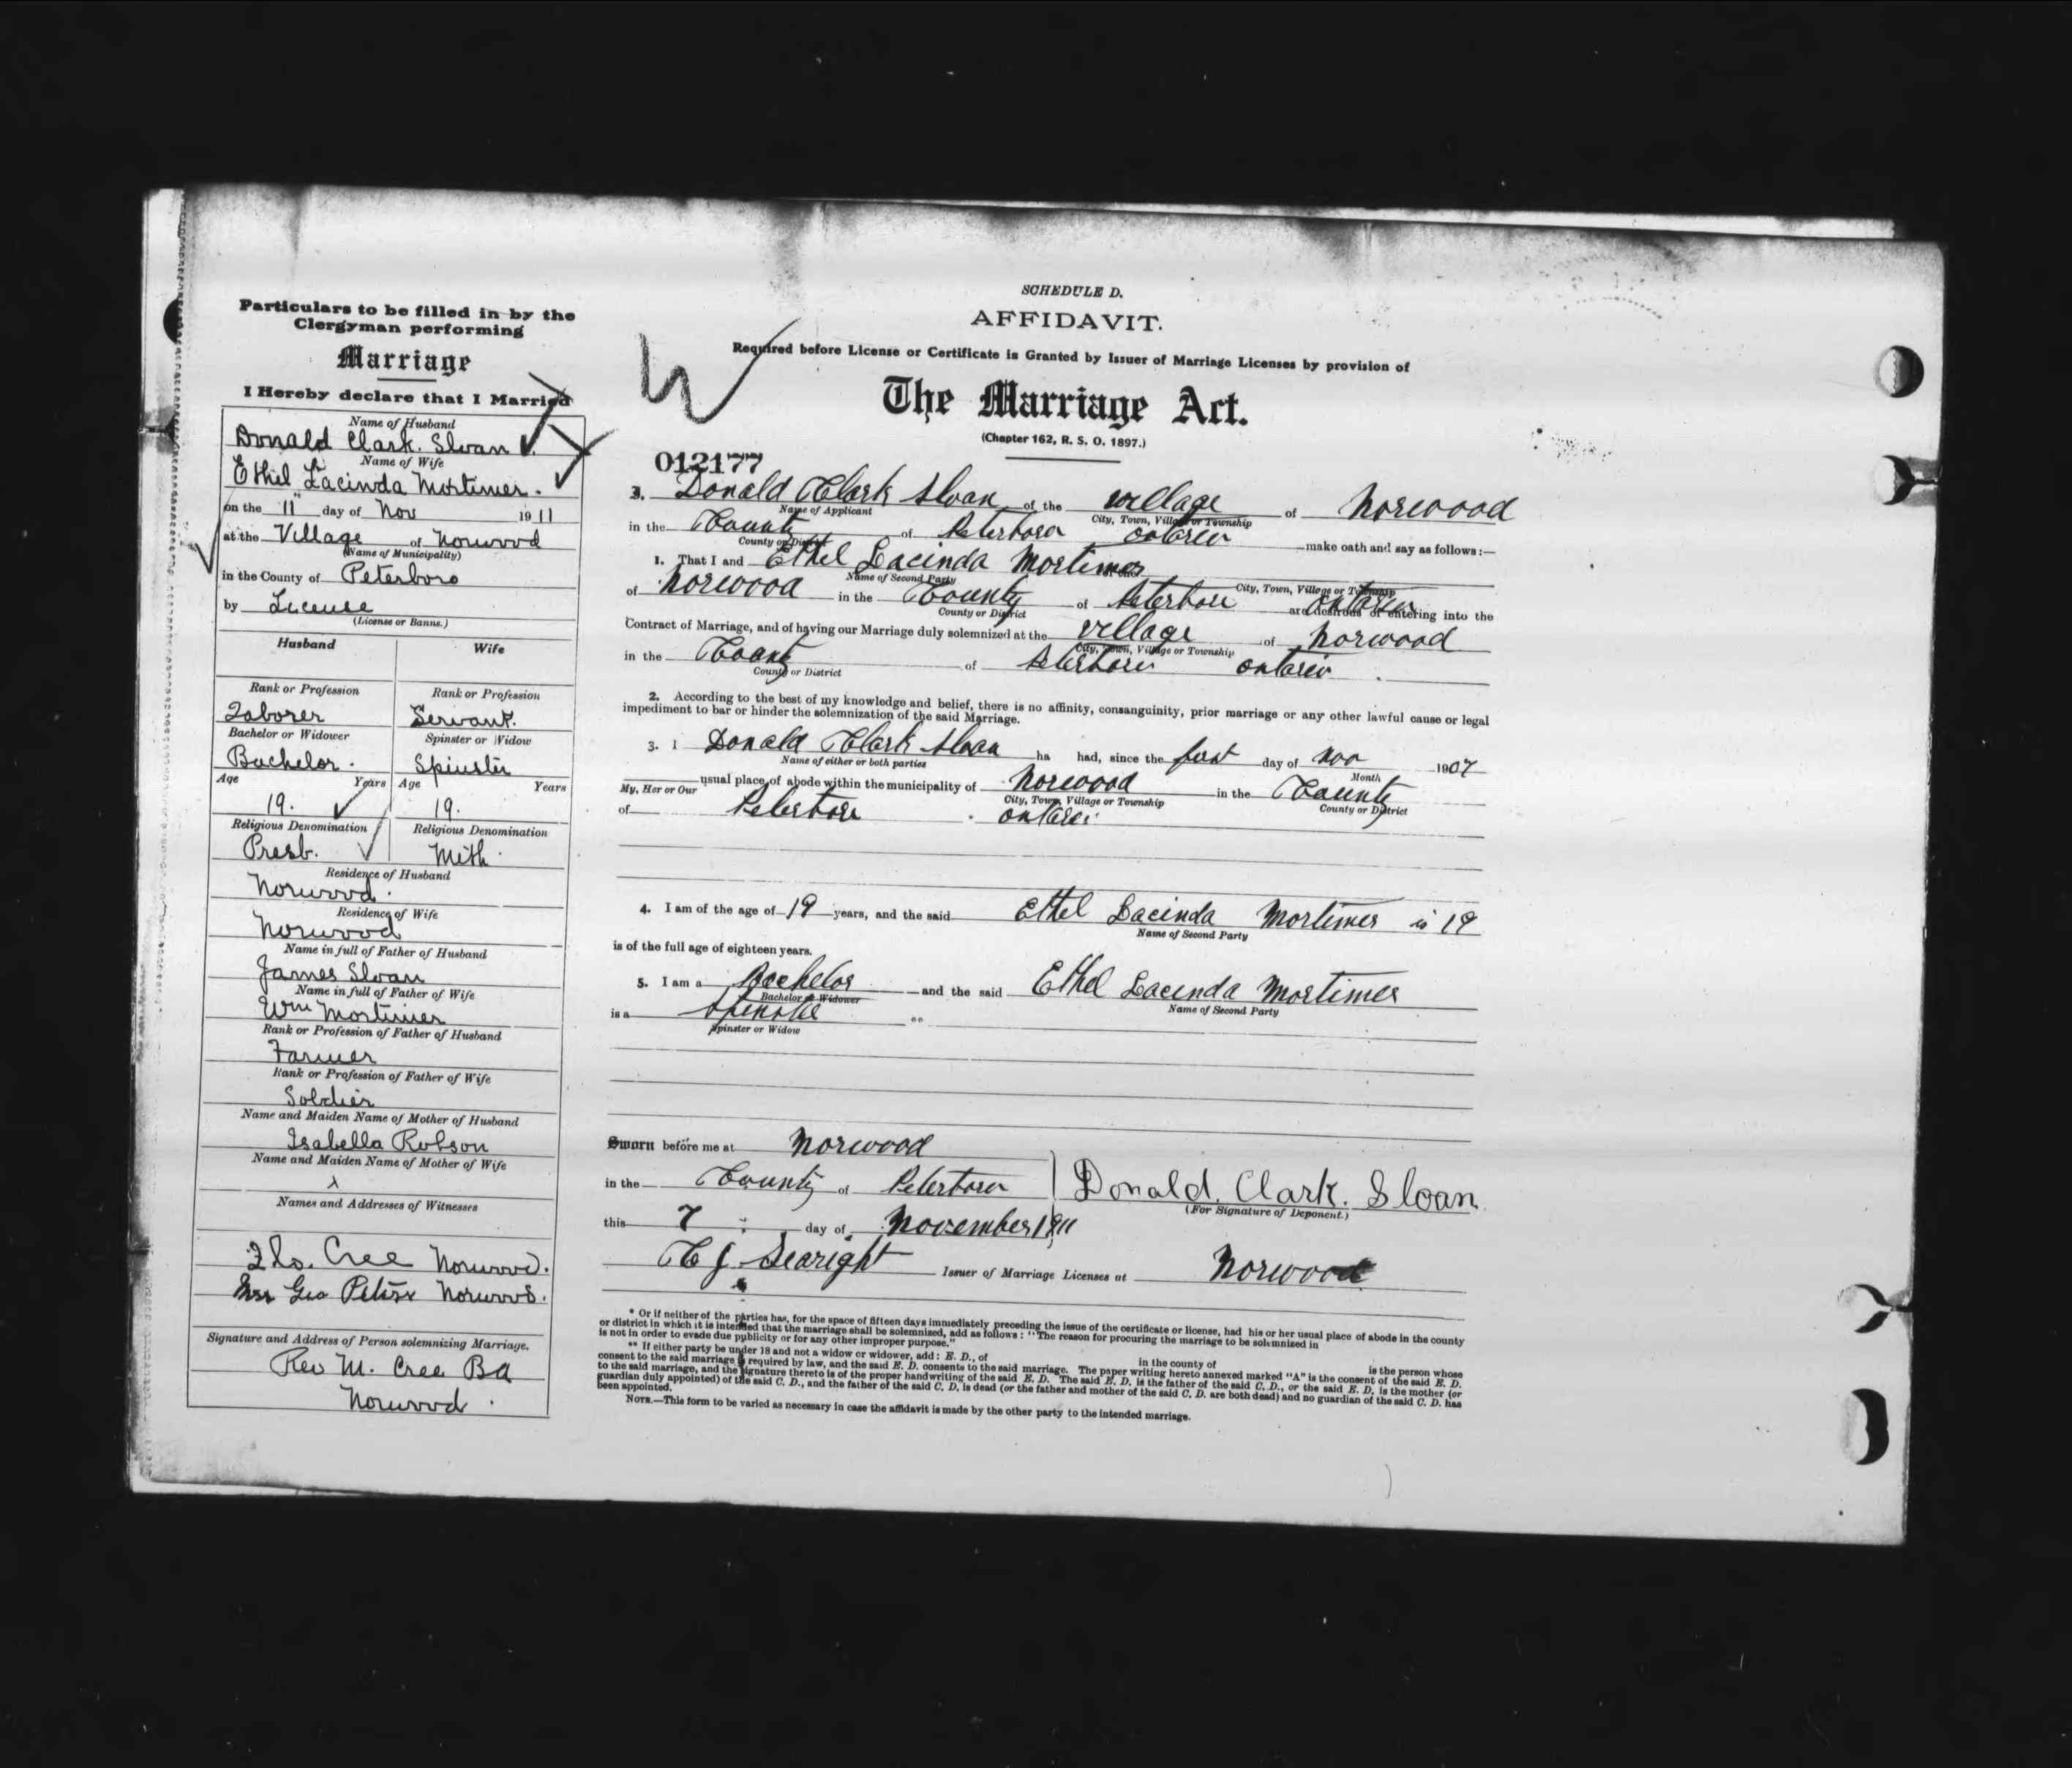 Particulars to be filled in by the
Clergyman performing
Marriage
I Hereby declare that I Married
Name of Husband
Donald Clark. Sloan
Name of Wife
Ethel Lacinda Mortimer.
on the 11" day of Nov 1911
at the Village of Norwood
(Name of Municipality)
in the County of Peterboro
by License
(License or Banns.)
Husband Wife
Rank or Profession Rank or Profession
Laborer Servant.
Bachelor or Widower Spinster or Widow
Bachelor. Spinster
Age Years Age Years
19. 19.
Religious Denomination Religious Denomination
Presb. Meth.
Residence of Husband
Norwood.
Residence of Wife
Norwood
Name in full of Father of Husband
James Sloan
Name in full of Father of Wife
Wm Mortimer
Rank or Profession of Father of Husband
Farmer
Rank or Profession of Father of Wife
Soldier
Name and Maiden Name of Mother of Husband
Isabella Robson
Name and Maiden Name of Mother of Wife
Names and Addresses of Witnesses
Cree Norwood.
Mrs Geo Peters Norwood.
Signature and Address of Person solemnizing Marriage.
Rev M. Cree BA
Norwood.
SCHEDULE D.
AFFIDAVIT.
Required before License or Certificate is Granted by Issuer of Marriage Licenses by provision of
The Marriage Act.
(Chapter 162, R. S. O. 1897.)
012177
3. Donald Clark Sloan of the village of Norwood
Name of Applicant City, Town, Village or Township
in the County of Peterboro Ontario make oath and say as follows:—
County or District
1. That I and Ethel Lacinda Mortimer
Name of Second Party City, Town, Village or Township
of Norwood in the County of Peterboro Ontario are desirous of entering into the
County or District
Contract of Marriage, and of having our Marriage duly solemnized at the village of Norwood
City, Town, Village or Township
in the County of Peterboro Ontario.
County or District
2. According to the best of my knowledge and belief, there is no affinity, consanguinity, prior marriage or any other lawful cause or legal
impediment to bar or hinder the solemnization of the said Marriage.
3. I Donald Clark Sloan ha had, since the first day of Nov 1907
Name of either or both parties Month
My, Her or Our usual place of abode within the municipality of Norwood in the County
City, Town, Village or Township County or District
of Peterboro. Ontario
4. I am of the age of 19 years, and the said Ethel Lacinda Mortimer is 19
Name of Second Party
is of the full age of eighteen years.
5. I am a Bachelor and the said Ethel Lacinda Mortimer
Bachelor or Widower Name of Second Party
is a Spinster **
Spinster or Widow
Sworn before me at Norwood
in the County of Peterboro
Donald. Clark. Sloan.
(For Signature of Deponent.)
this 7 day of November 1911
Searight Issuer of Marriage Licenses at Norwood
* Or if neither of the parties has, for the space of fifteen days immediately preceding the issue of the certificate or license, had his or her usual place of abode in the county
or district in which it is intended that the marriage shall be solemnized, add as follows: "The reason for procuring the marriage to be solemnized in
is not in order to evade due publicity or for any other improper purpose."
** If either party be under 18 and not a widow or widower, add: E. D., of in the county of is the person whose
consent to the said marriage is required by law, and the said E. D. consents to the said marriage. The paper writing hereto annexed marked "A" is the consent of the said E. D.
to the said marriage, and the signature thereto is of the proper handwriting of the said E. D. The said E. D. is the father of the said C. D., or the said E. D. is the mother (or
guardian duly appointed) of the said C. D., and the father of the said C. D. is dead (or the father and mother of the said C. D. are both dead) and no guardian of the said C. D. has
been appointed.
NOTE.—This form to be varied as necessary in case the affidavit is made by the other party to the intended marriage.